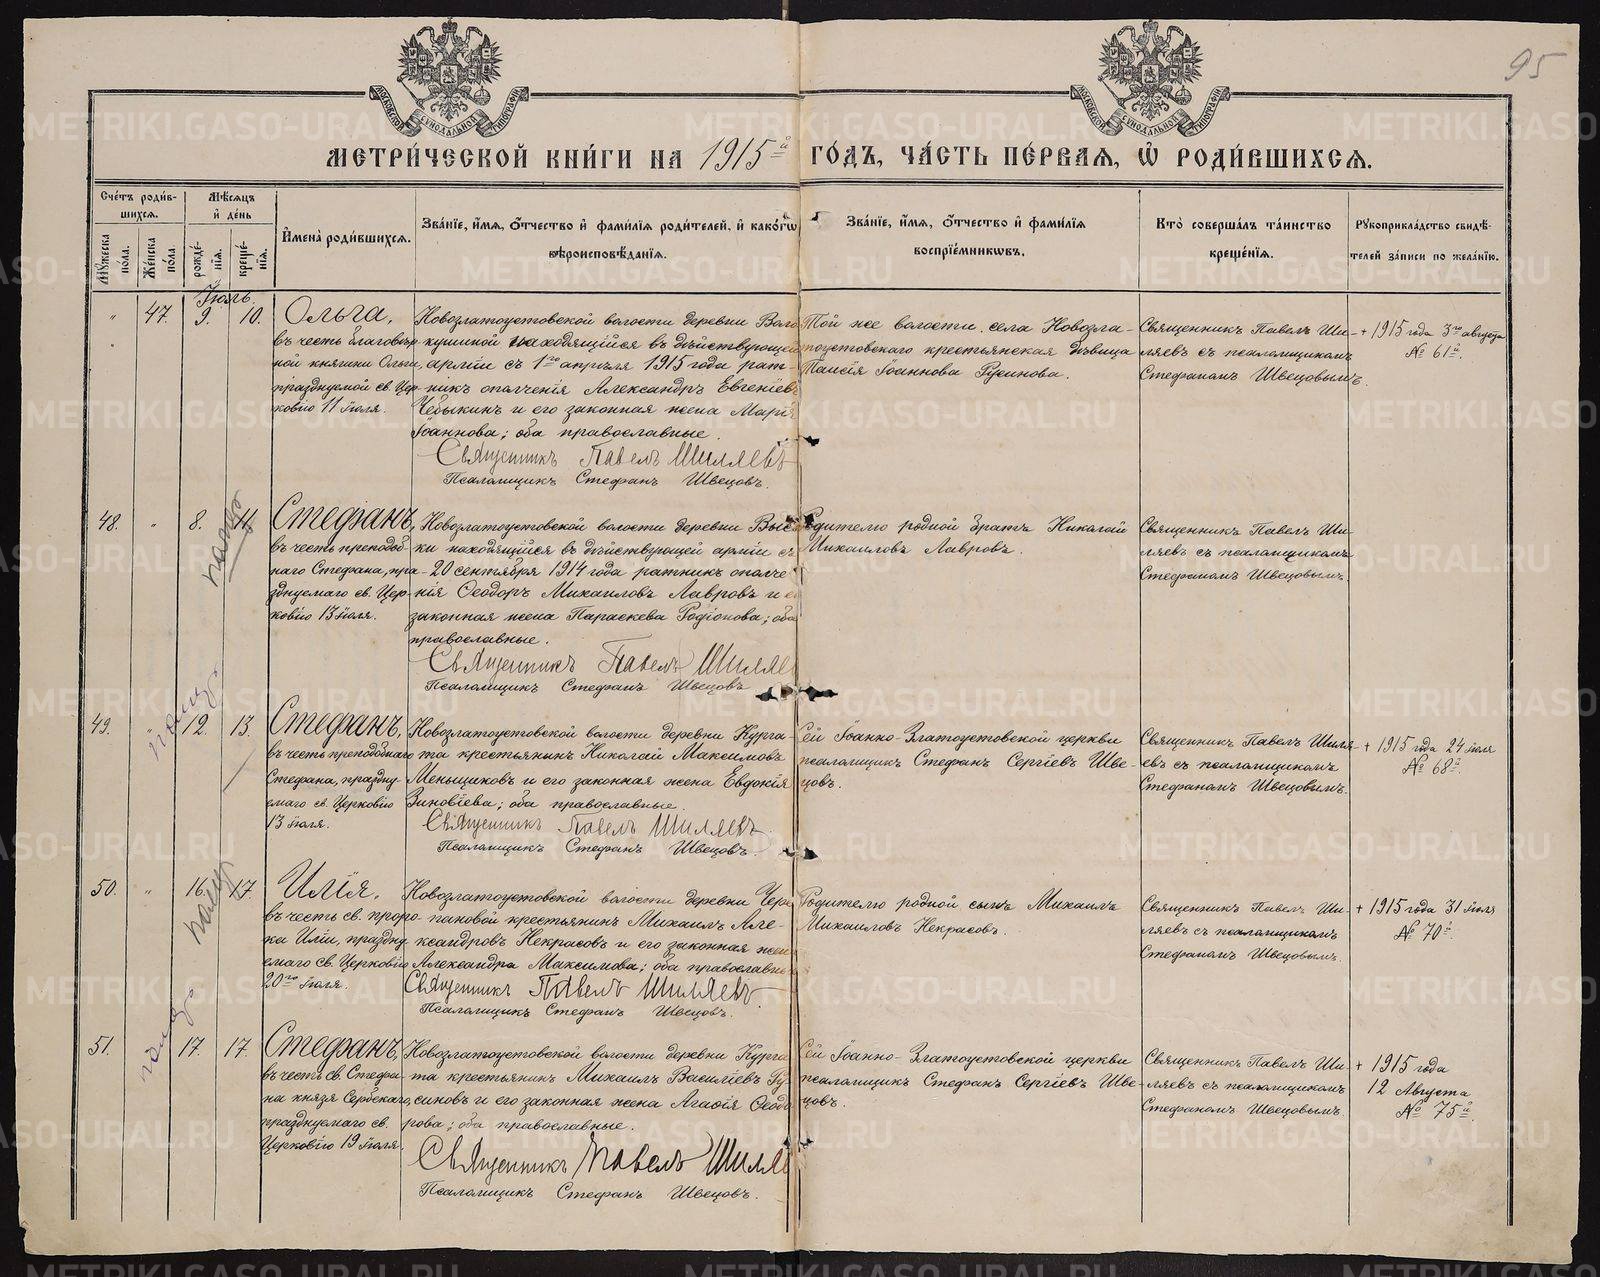 95
МЕТРИ́ЧЕСКОЙ КНИ́ГИ НА 1915й ГО́ДЪ, ЧА́СТЬ ПЕ́РВАЯ, Ѿ РОДИ́ВШИХСЯ.
Сче́тъ роди́в-
шихся.
Мѣ́сяцъ
и́ де́нь
Му́жеска
по́ла.
Же́нска
по́ла.
рожде́-
нїя.
креще́-
нїя.
И҆мена̀ роди́вшихся.
Зва́нїе, и҆́мя, ѻ҆́тчество и҆ фами́лїя роди́телей, и҆ како́гѡ
вѣроисповѣ́данїя.
Зва́нїе, и҆́мя, ѻ҆́тчество и҆ фами́лїя
воспрїе́мникѡвъ.
Кто̀ соверша́лъ та́инство
креще́нїя.
Рукоприкла́дство свидѣ́-
телей за́писи по жела́нїю.
Іюль.
" 47. 9. 10.
Ольга,
въ честь благовѣр-
ной княгини Ольги,
празднуемой св. Цер-
ковію 11 іюля.
Новозлатоустовской волости деревни
кушиной находящійся въ дѣйствующей
арміи съ 1го апрѣля 1915 года рат-
никъ ополченія Александръ Евгеніевъ
Чебыкинъ и его законная жена Марія
Іоаннова; оба православные.
Священникъ Павелъ Шиляевъ
Псаломщикъ Стефанъ Швецовъ.
Той же волости, села Новозла-
тоустовскаго крестьянская дѣвица
Таисія Іоаннова Русинова.
Священникъ Павелъ Ши-
ляевъ съ псаломщикомъ
Стефаномъ Швецовымъ.
+ 1915 года 3го августа
№ 61й.
48. " 8. 11.
Стефанъ,
въ честь преподоб-
наго Стефана, пра-
зднуемаго св. Цер-
ковію 13 іюля.
Новозлатоустовской волости деревни Высо
ки находящійся въ дѣйствующей арміи съ
20 сентября 1914 года ратникъ ополче
нія Ѳеодоръ Михаиловъ Лавровъ и е
законная жена Параскева Родіонова; оба
православные.
Священникъ Павелъ Шиляе
Псаломщикъ Стефанъ Швецовъ
Родителю родной братъ Николай
Михаиловъ Лавровъ.
Священникъ Павелъ Ши-
ляевъ съ псаломщикомъ
Стефаномъ Швецовымъ.
49. " 12. 13.
Стефанъ,
въ честь преподобнаго
Стефана, праздну-
емаго св. Церковію
13 іюля.
Новозлатоустовской волости деревни Курга-
та крестьянинъ Николай Максимовъ
Меньщиковъ и его законная жена Евдокія
Зиновіева; оба православные.
Священникъ Павелъ Шиляевъ
Псаломщикъ Стефанъ Швецовъ.
Сей Іоанно-Златоустовской церкви
псаломщикъ Стефанъ Сергіевъ Шве-
цовъ.
Священникъ Павелъ Шиля-
евъ съ псаломщикомъ
Стефаномъ Швецовымъ.
+ 1915 года 24 іюля
№ 68й.
50. " 16. 17.
Илія,
въ честь св. проро-
ка Иліи, праздну
емаго св. Церковію
20го іюля.
Новозлатоустовской волости деревни Чере
пановой крестьянинъ Михаилъ Але-
ксандровъ Некрасовъ и его законная жена
Александра Максимова; оба православные
Священникъ Павелъ Шиляевъ
Псаломщикъ Стефанъ Швецовъ.
Родителю родной сынъ Михаилъ
Михаиловъ Некрасовъ.
Священникъ Павелъ Ши-
ляевъ съ псаломщикомъ
Стефаномъ Швецовымъ.
+ 1915 года 31 іюля
№ 70й.
51. 17. 17.
Стефанъ,
въ честь св. Стефа-
на князя Сербскаго,
празднуемаго св.
Церковію 19 іюля.
Новозлатоустовской волости деревни Курга
та крестьянинъ Михаилъ Васильевъ Гу-
синовъ и его законная жена Агаѳія Ѳеодо
рова; оба православные.
Священникъ Павелъ Шиляе
Псаломщикъ Стефанъ Швецовъ.
Сей Іоанно-Златоустовской церкви
псаломщикъ Стефанъ Сергіевъ Шве-
цовъ.
Священникъ Павелъ Ши-
ляевъ съ псаломщикомъ
Стефаномъ Швецовымъ.
+ 1915 года
12 Августа
№ 75й.
METRIKI.GASO-URAL.RU